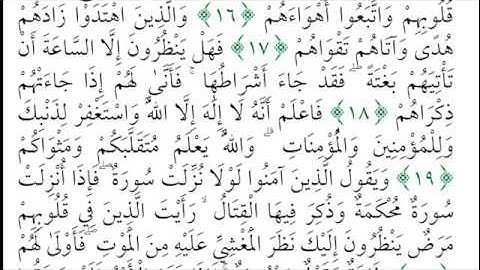 قُلُوبِهِمْ وَاتَّبَعُوا أَهْوَاءَهُمْ ﴿١٦﴾ وَالَّذِينَ اهْتَدَوْا زَادَهُمْ
هُدًى وَآتَاهُمْ تَقْوَاهُمْ ﴿١٧﴾ فَهَلْ يَنْظُرُونَ إِلَّا السَّاعَةَ أَنْ
تَأْتِيَهُمْ بَغْتَةً ۖ فَقَدْ جَاءَ أَشْرَاطُهَا ۚ فَأَنَّىٰ لَهُمْ إِذَا جَاءَتْهُمْ
ذِكْرَاهُمْ ﴿١٨﴾ فَاعْلَمْ أَنَّهُ لَا إِلَٰهَ إِلَّا اللَّهُ وَاسْتَغْفِرْ لِذَنْبِكَ
وَلِلْمُؤْمِنِينَ وَالْمُؤْمِنَاتِ ۗ وَاللَّهُ يَعْلَمُ مُتَقَلَّبَكُمْ وَمَثْوَاكُمْ
﴿١٩﴾ وَيَقُولُ الَّذِينَ آمَنُوا لَوْلَا نُزِّلَتْ سُورَةٌ ۖ فَإِذَا أُنْزِلَتْ
سُورَةٌ مُحْكَمَةٌ وَذُكِرَ فِيهَا الْقِتَالُ ۙ رَأَيْتَ الَّذِينَ فِي قُلُوبِهِمْ
مَرَضٌ يَنْظُرُونَ إِلَيْكَ نَظَرَ الْمَغْشِيِّ عَلَيْهِ مِنَ الْمَوْتِ ۖ فَأَوْلَىٰ لَهُمْ